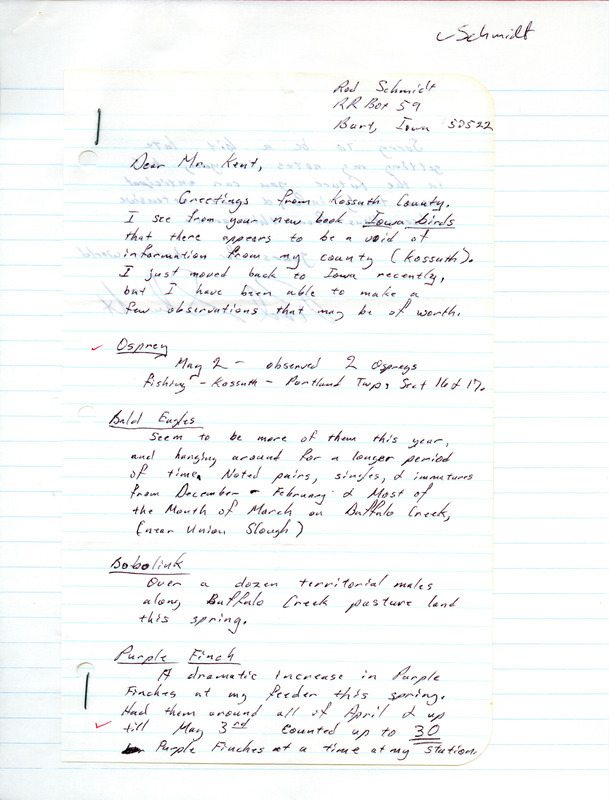 Schmidt
Rod Schmidt
RR Box 59
Burt, Iowa 50522
Dear Mr. Kent,
Greetings from Kossuth County.
I see from your new book Iowa birds
that there appears to be a void of
information from my county (Kossuth).
I just moved back to Iowa recently,
but I have been able to make a
few observations that may be of worth.
Osprey
May 2 - observed 2 Ospreys
fishing - Kossuth - Portland Twp, Sect 16 & 17.
Bald Eagles
Seem to be more of them this year,
and hanging around for a longer period
of time. Noted pairs, singles, & immatures
from December - February & Most of
the Month of March on Buffalo Creek,
(near Union Slough)
Bobolink
Over a dozen territorial males
along Buffalo Creek pasture land
this spring.
Purple Finch
A dramatic increase in Purple
Finches at my feeder this spring.
Had them around all of April & up
till May 3rd counted up to 30
Purple Finches at a time at my station.